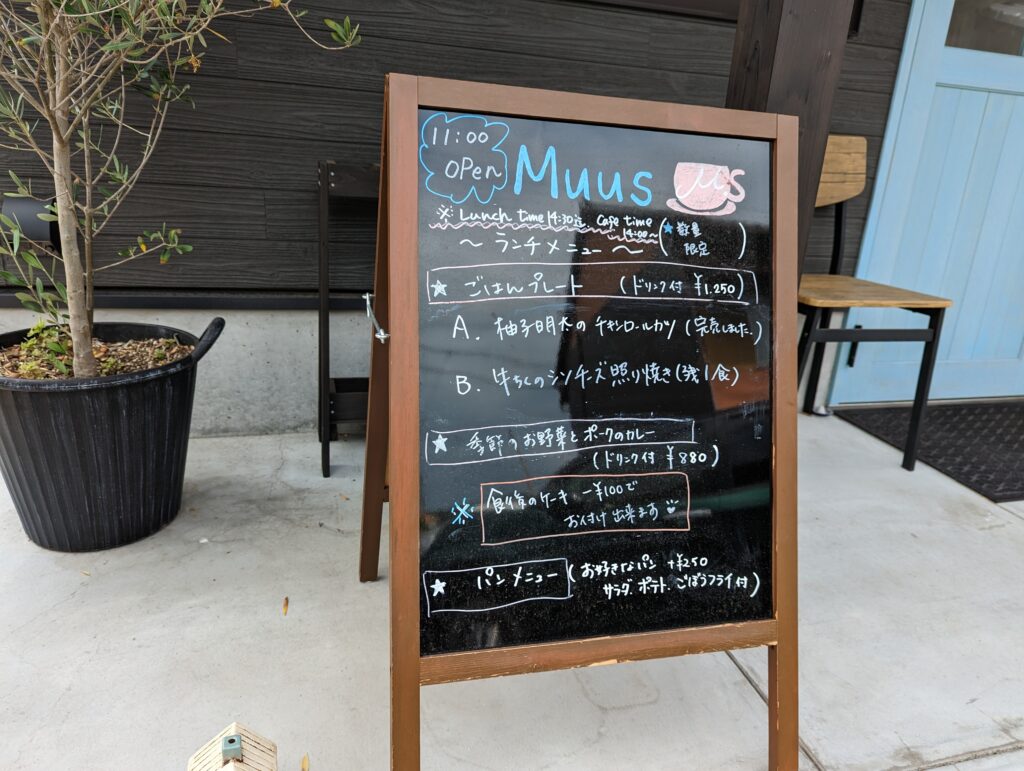 11:00
OPen
Muus
μ's
※ Lunch time 14:30迄 Cafe time 14:00~
~ ランチメニュー ~ (★数量限定)
★ ごはんプレート (ドリンク付 ¥1.250)
A. 柚子明太のチキンロールカツ (完売しました。)
B. 牛ちくのシソチーズ照り焼き (残1食)
★ 季節のお野菜とポークのカレー
(ドリンク付 ¥880)
※ 食後のケーキ -¥100で
お付け出来ます
★ パンメニュー (お好きなパン +¥250
サラダ. ポテト. ごぼうフライ付)